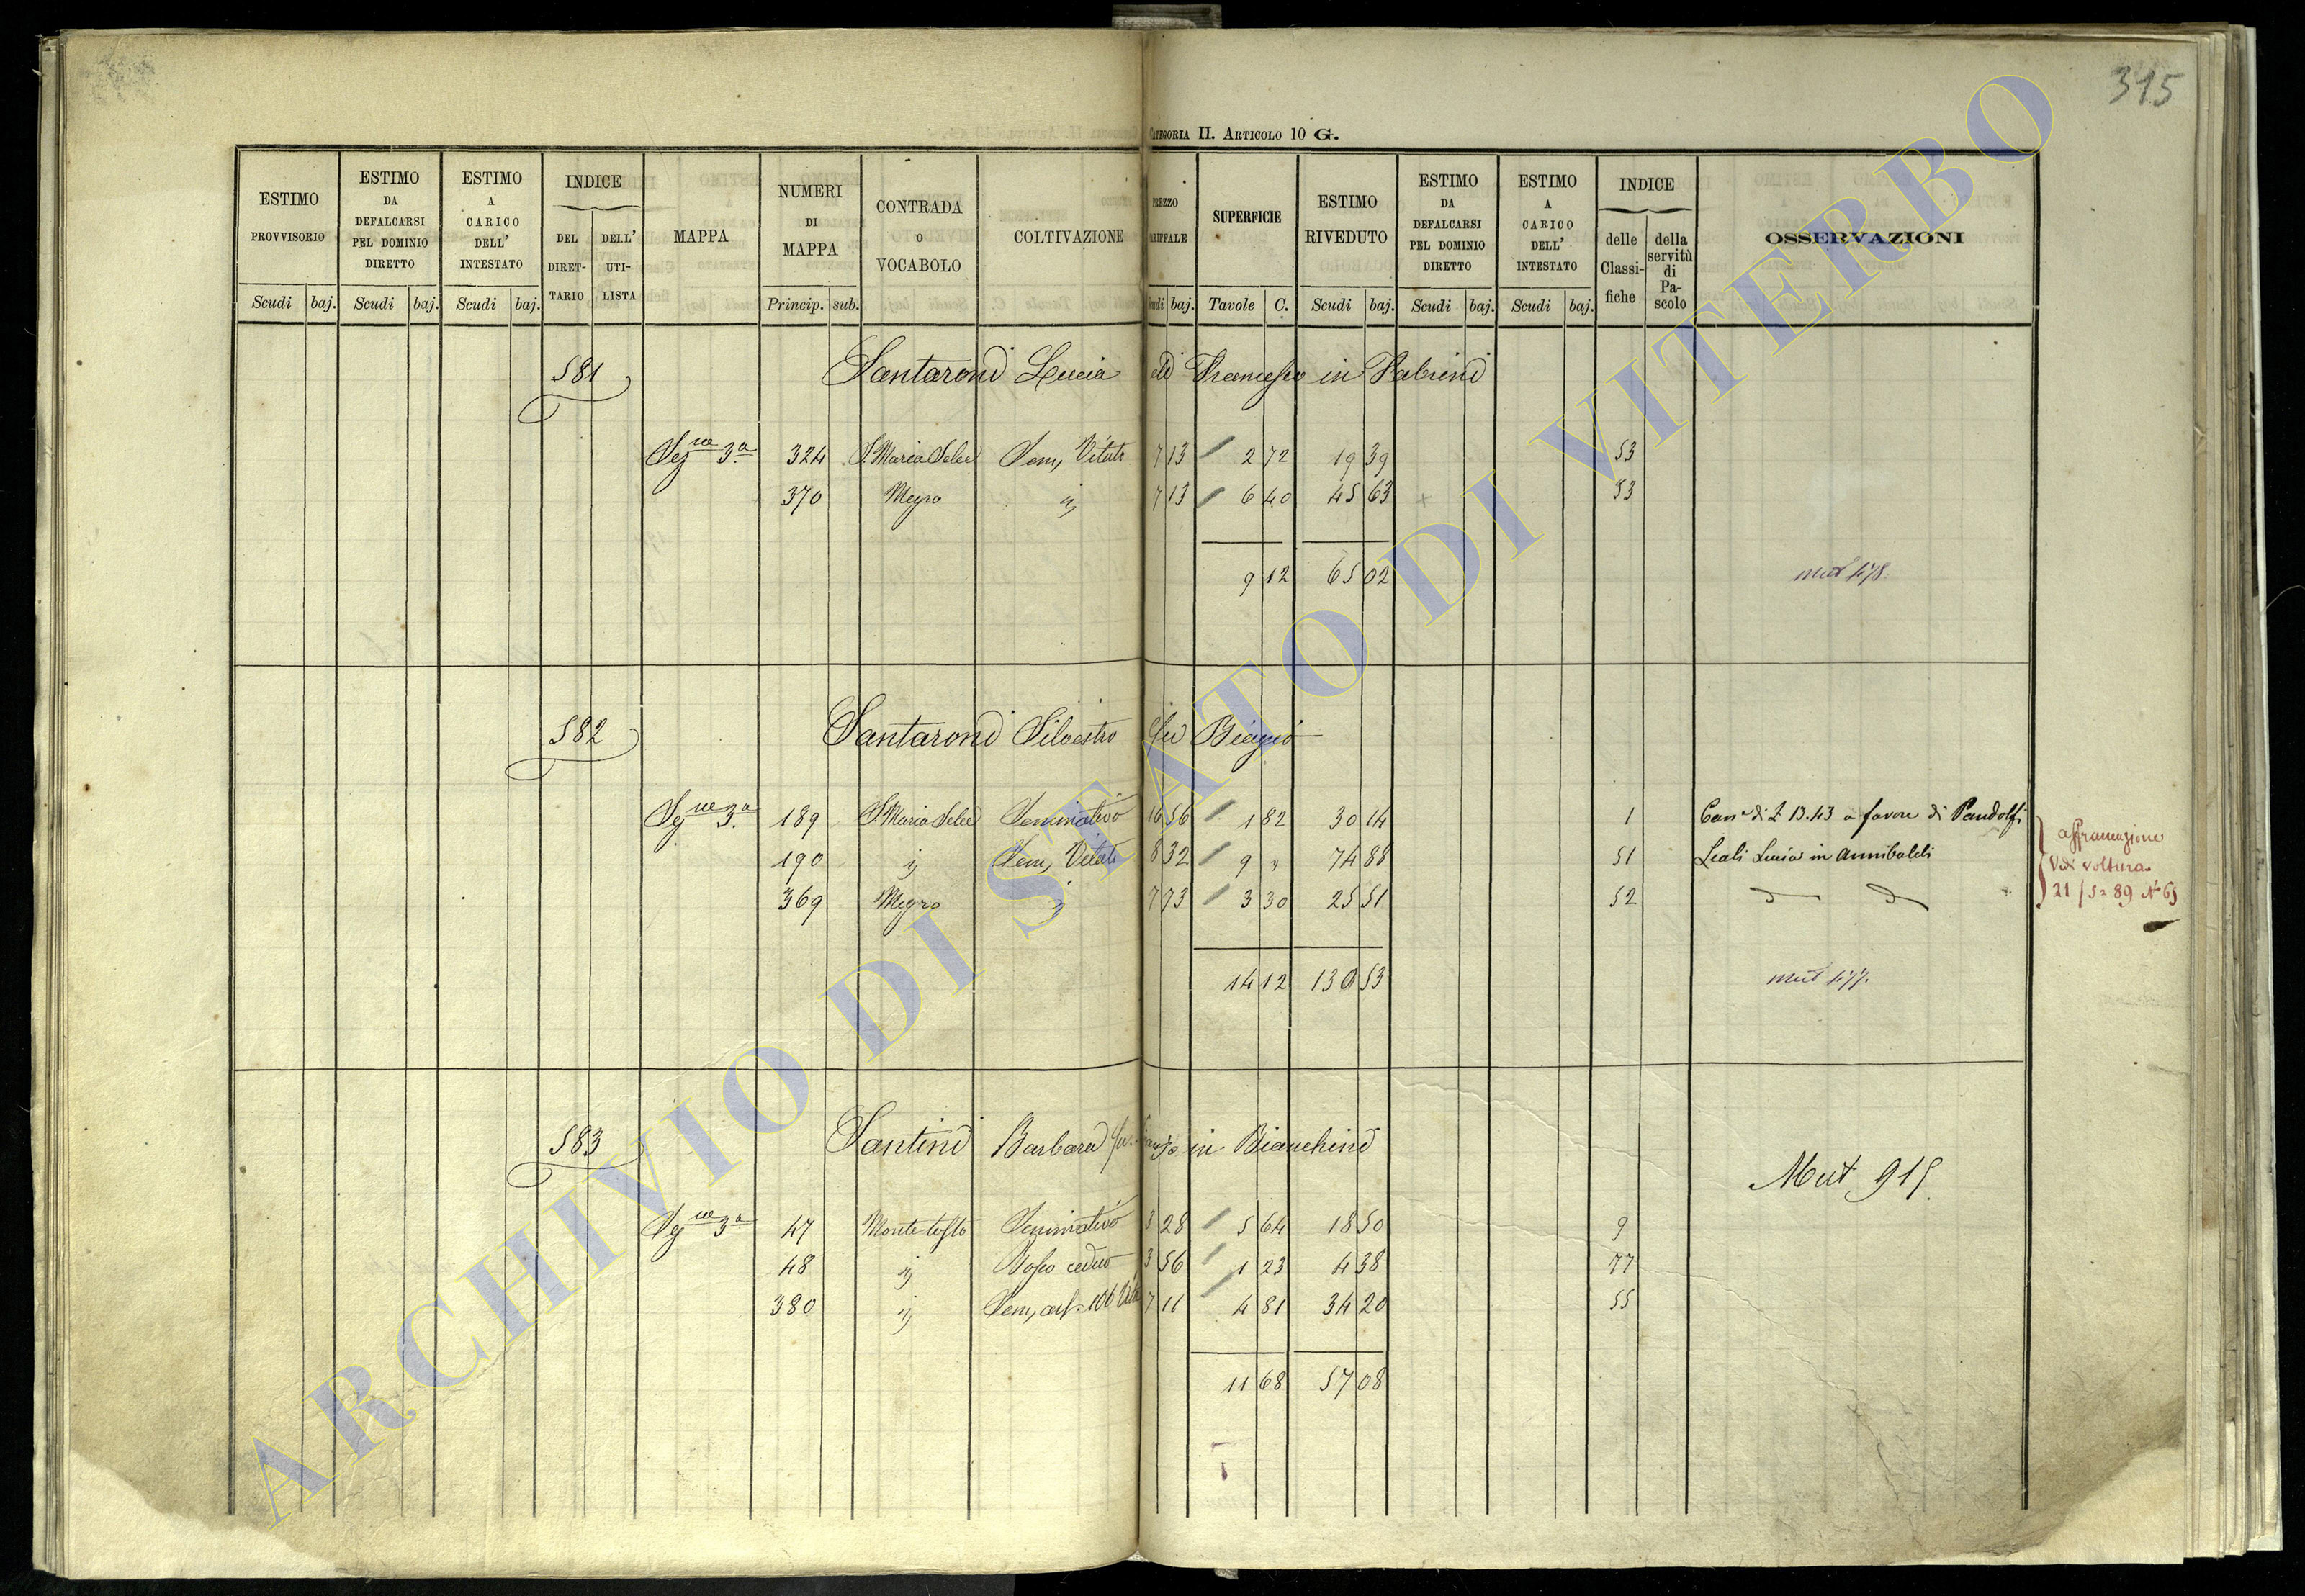 315
CATEGORIA II. ARTICOLO 10 G.
ESTIMO PROVVISORIO Scudi baj.
ESTIMO DA DEFALCARSI PEL DOMINIO DIRETTO Scudi baj.
ESTIMO A CARICO DELL' INTESTATO Scudi baj.
INDICE DEL DIRET-TARIO DELL' UTI-LISTA
MAPPA
NUMERI DI MAPPA Princip. sub.
CONTRADA O VOCABOLO
COLTIVAZIONE
PREZZO TARIFFALE Scudi baj.
SUPERFICIE Tavole C.
ESTIMO RIVEDUTO Scudi baj.
ESTIMO DA DEFALCARSI PEL DOMINIO DIRETTO Scudi baj.
ESTIMO A CARICO DELL' INTESTATO Scudi baj.
INDICE delle Classi-fiche della servitù di Pa-scolo
OSSERVAZIONI
581 Santaroni Lucia di Francesco in Fabrini
Sez ne 3a 324 S. Maria Selce Sem, Vitato 7 13 2 72 19 39 53
370 Megra ij 7 13 6 40 45 63 53
9 12 65 02
mut 478
582 Santaroni Silvestro fu Biagio
Sez ne 3a 189 S. Maria Selce Seminativo 16 56 1 82 30 14 1 Can e di £ 13.43 a favore di Pandolfi
190 ij Sem, Vitato 8 32 9 " 74 88 51 Leali Lucia in Annibaldi
369 Megra ij 7 73 3 30 25 51 52
affrancazione
Vedi voltura
21 / 5 = 89 N° 65
14 12 130 53
mut 477.
583 Santini Barbara fu in Bianchini
Mut 915.
Sez ne 3a 47 Monte testo Seminativo 3 28 5 64 18 50 9
48 ij Bosco ceduo 3 56 1 23 4 38 77
380 ij 7 11 4 81 34 20 55
11 68 57 08
ARCHIVIO DI STATO DI VITERBO